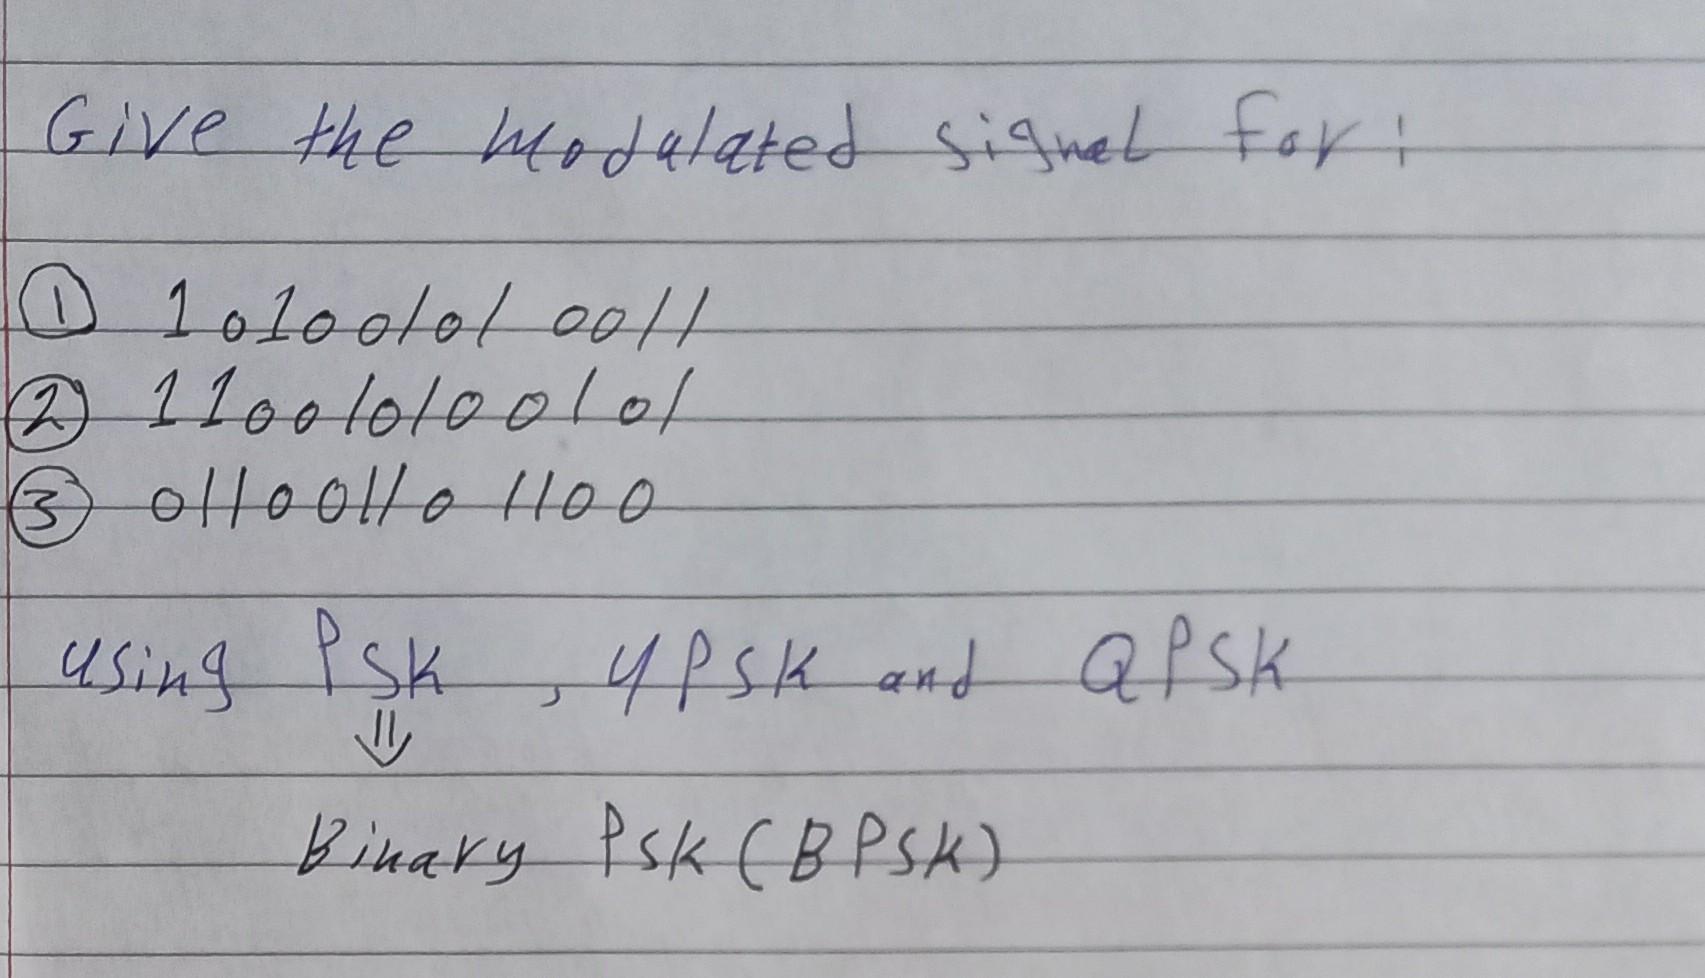 Give the Modulated signal for:
① 101001010011
② 110010100101
③ 011001101100
using PSK, 4PSK and QPSK
⇓
Binary PSK (BPSK)